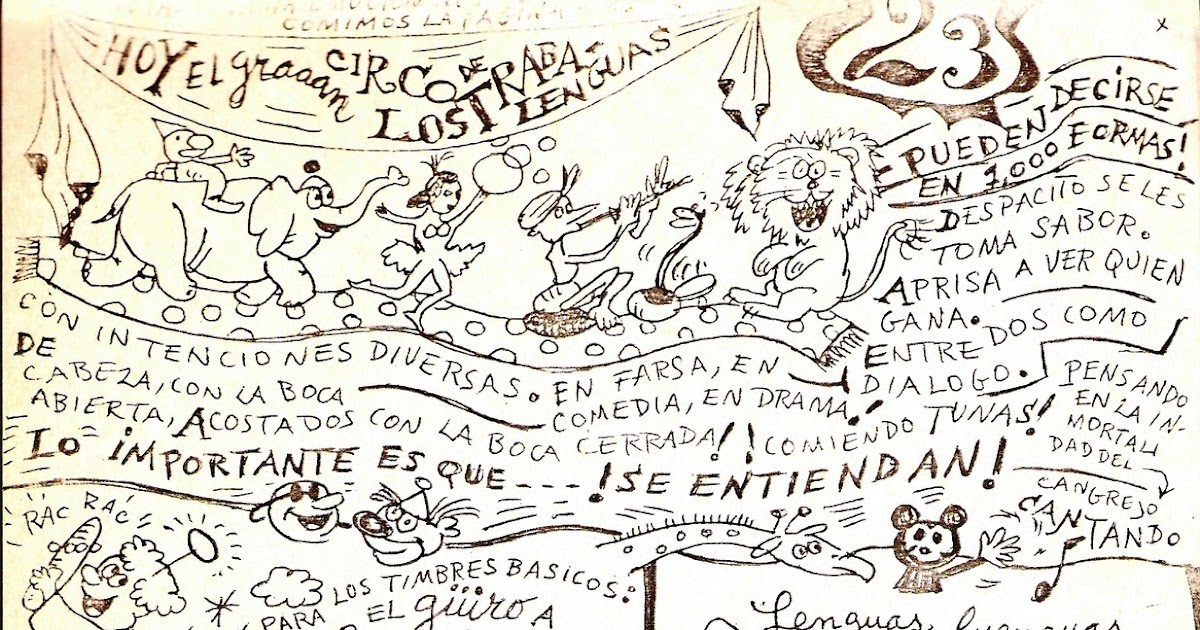 COMIMOS LA PAGINA
HOY EL graaan CIRCO DE
LOS TRABA-
LENGUAS
23
PUEDEN DECIRSE
EN 1,000 FORMAS!
DESPACITO SE LES
TOMA SABOR.
APRISA A VER QUIEN
GANA.
ENTRE DOS COMO
DIALOGO.
PENSANDO
EN LA IN-
MORTALI
DAD DEL
CANGREJO
CANTANDO
CON INTENCIONES DIVERSAS. EN FARSA, EN
COMEDIA, EN DRAMA!
DE
CABEZA, CON LA BOCA
ABIERTA, ACOSTADOS CON LA BOCA CERRADA! ! COMIENDO TUNAS!
LO IMPORTANTE ES QUE---- !SE ENTIENDAN!
RAC RAC
LOS TIMBRES BASICOS:
PARA EL güiro A
Lenguas,